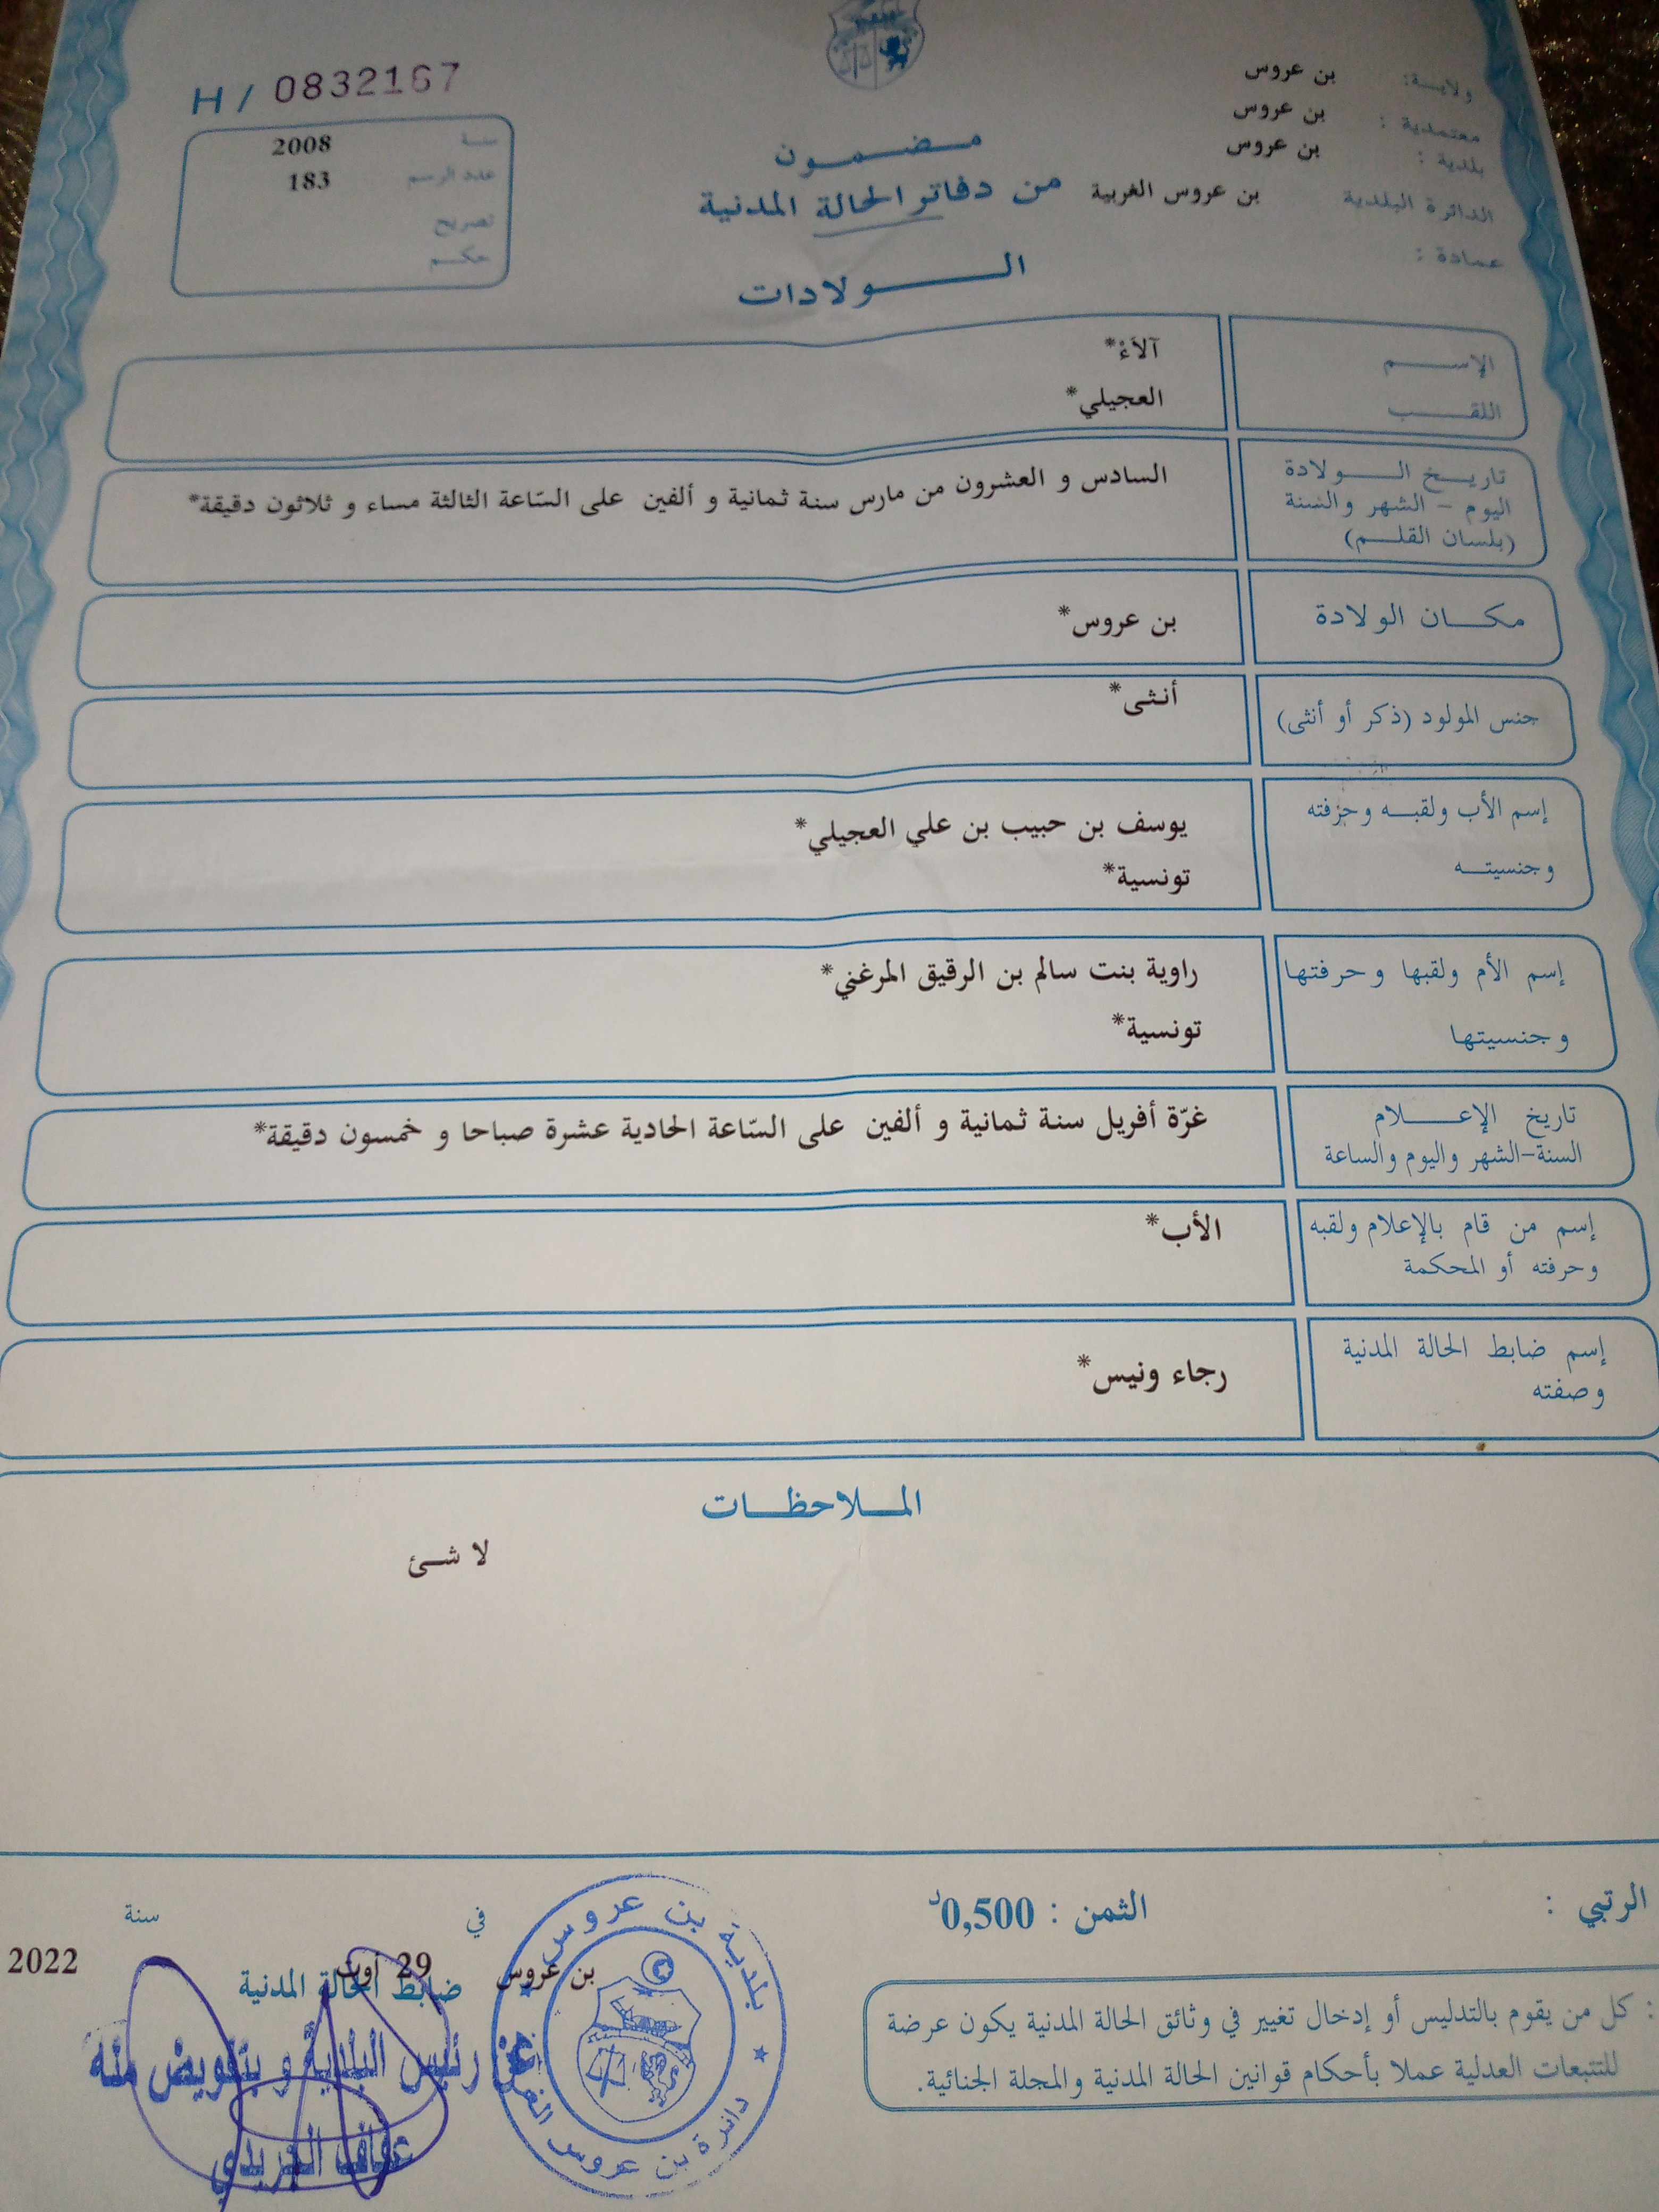 ولايـــة: بن عروس
معتمدية : بن عروس
بلدية : بن عروس
الدائرة البلدية بن عروس الغربية
عمادة :
H / 0832167
سنـة 2008
عدد الرسم 183
تصريح
حكـم
مـــضـــمـــون
من دفاتر الحالة المدنية
الـــــولادات
الإســــــم آلاَءْ*
اللقـــــب العجيلي*
تاريـــخ الـــــولادة
اليوم - الشهر والسنة
(بلسان القلــم)
السادس و العشرون من مارس سنة ثمانية و ألفين على السّاعة الثالثة مساء و ثلاثون دقيقة*
مكـــان الولادة بن عروس*
جنس المولود (ذكر أو أنثى) أنثى*
إسم الأب ولقبـــه وحرفته يوسف بن حبيب بن علي العجيلي*
وجنسيتـــه تونسية*
إسم الأم ولقبها وحرفتها راوية بنت سالم بن الرقيق المرغني*
وجنسيتها تونسية*
تاريخ الإعــــلام
السنة-الشهر واليوم والساعة
غرّة أفريل سنة ثمانية و ألفين على السّاعة الحادية عشرة صباحا و خمسون دقيقة*
إسم من قام بالإعلام ولقبه
وحرفته أو المحكمة
الأب*
إسم ضابط الحالة المدنية
وصفته
رجاء ونيس*
المـــلاحظـــات
لا شئ
الرتبي :
الثمن : 0,500د
في سنة
بن عروس 29 أوت 2022
ضابط الحالة المدنية
عن رئيس البلدية و بتفويض منه
بلدية بن عروس
دائرة بن عروس
: كل من يقوم بالتدليس أو إدخال تغيير في وثائق الحالة المدنية يكون عرضة
للتتبعات العدلية عملا بأحكام قوانين الحالة المدنية والمجلة الجنائية.